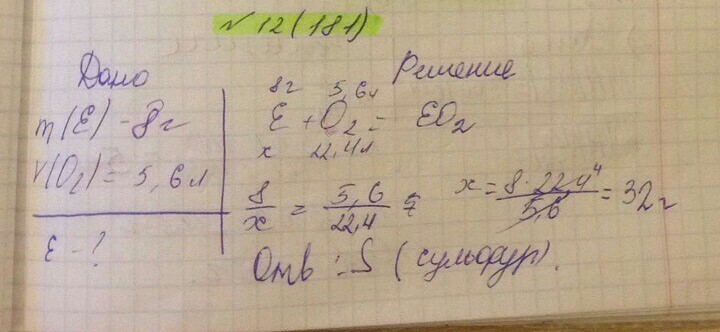 № 12 (181)
Дано
m(E) - 8г
V(O₂) = 5,6л
E - ?
Решение
8г 5,6л
E + O₂ = EO₂
x 22,4л
8/x = 5,6/22,4 x = 8·22,4⁴/5,6 = 32г
Отв: S (сульфур).